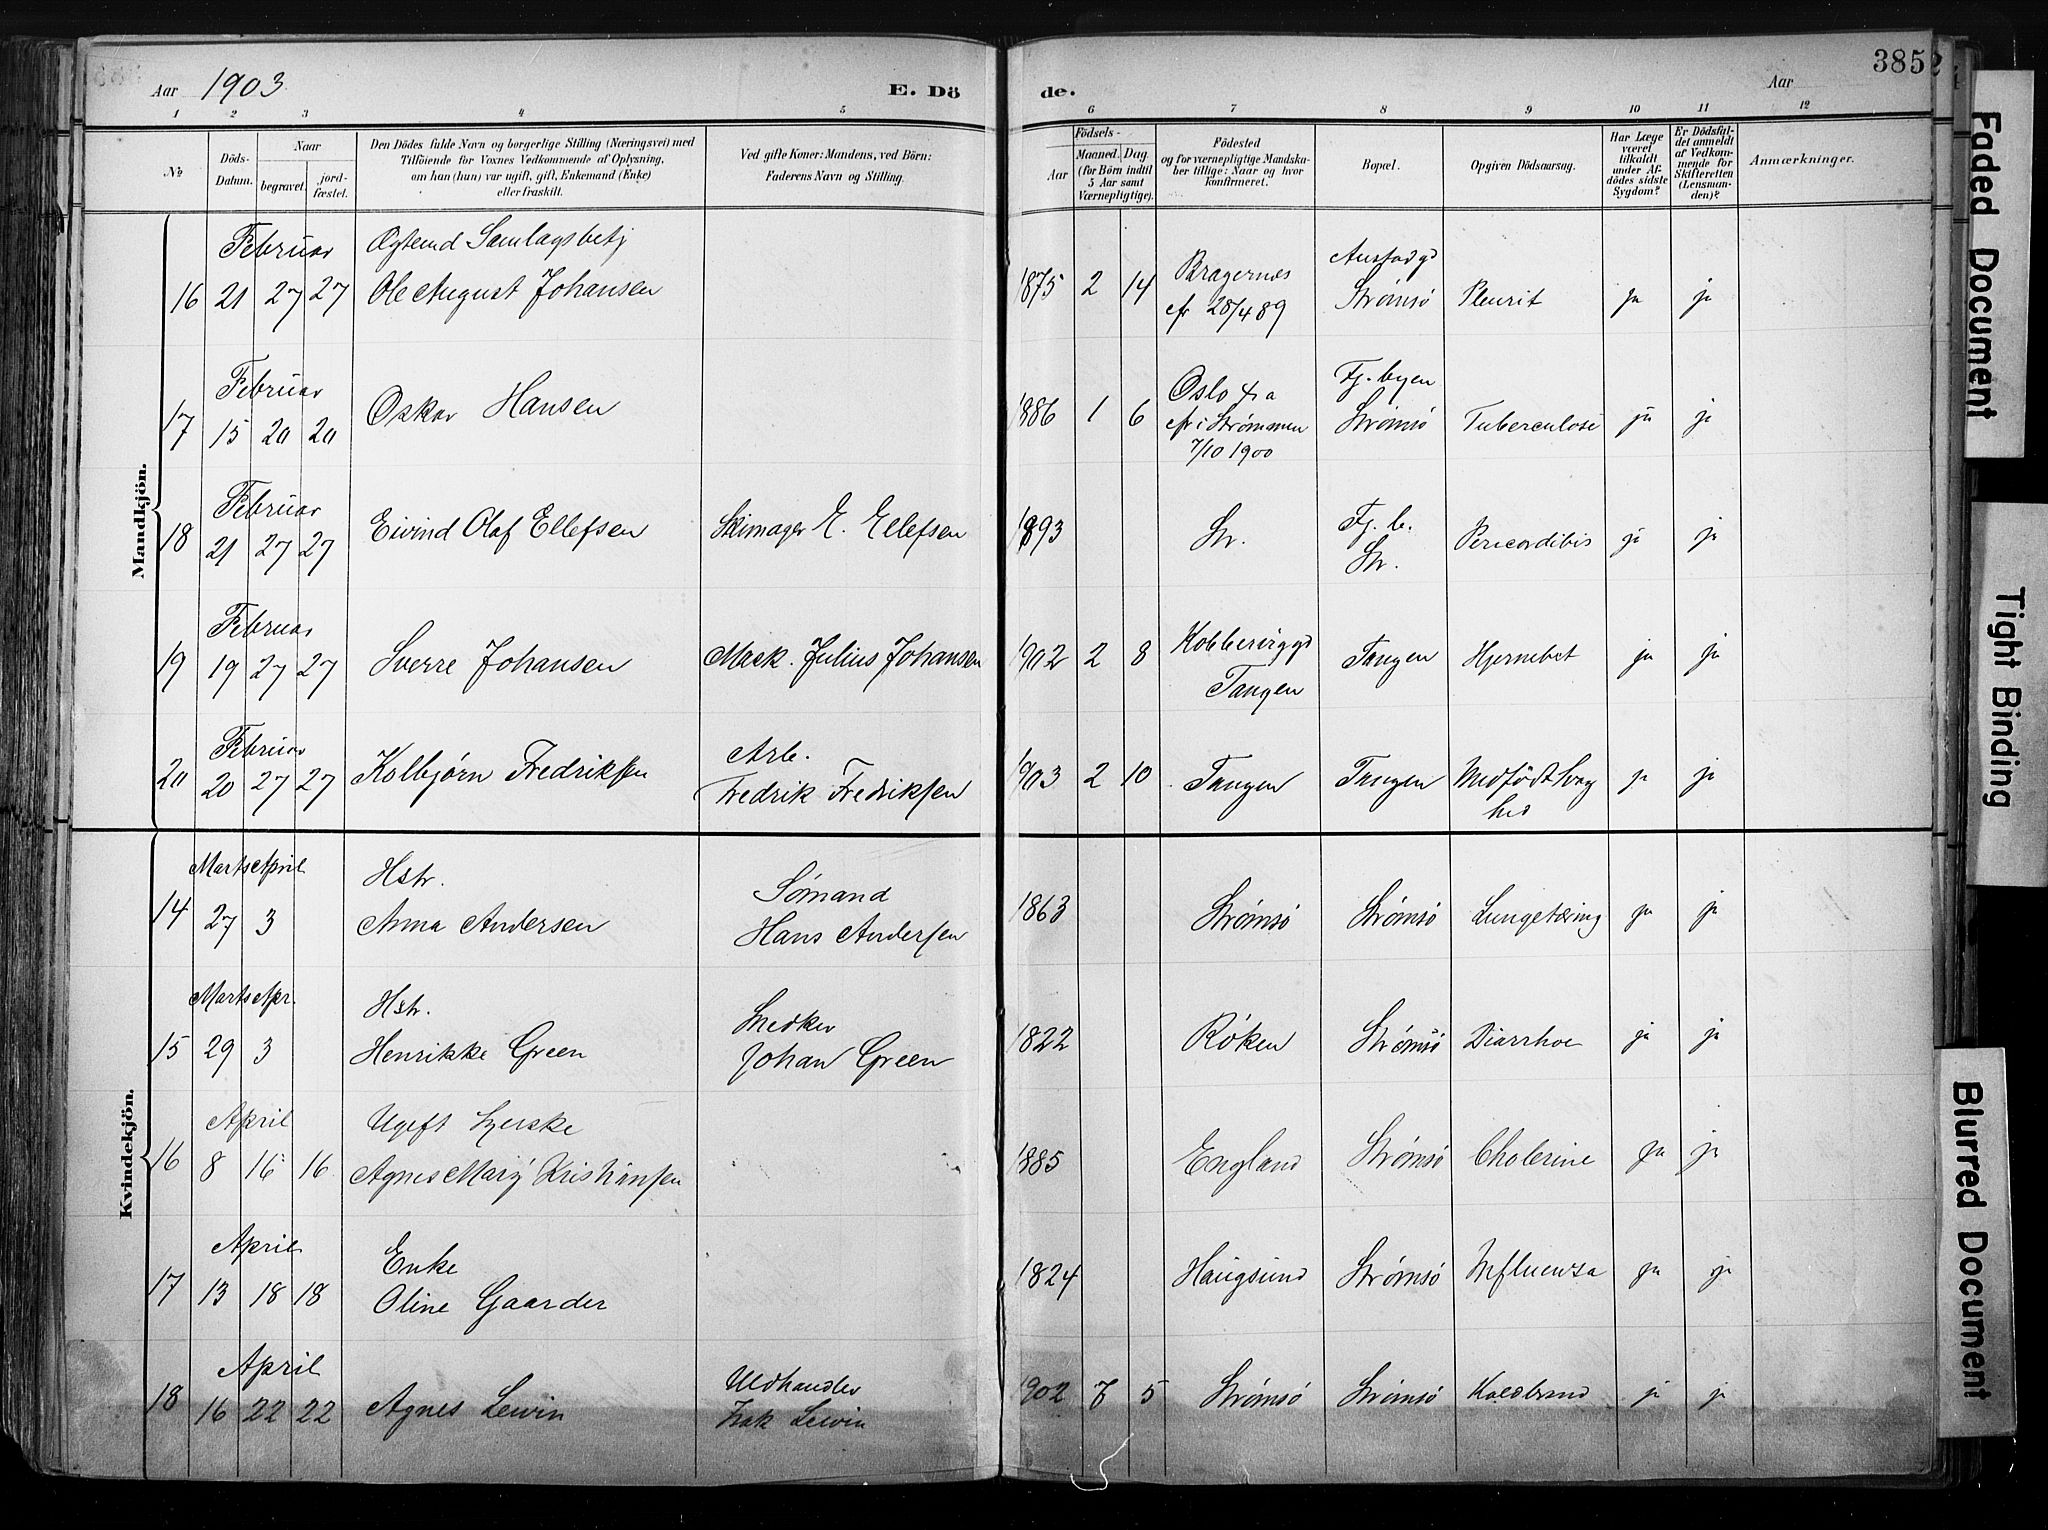 Aar 1903 E. Dö
de. Aar 3852
1 2 3 4 5
6 7 8 9 10 11 12
№
Döds-
Datum.
Naar
begravet.
jord-
fæstet.
Den Dödes fulde Navn og borgerlige Stilling (Næringsvei) med
Tilföiende for Voxnes Vedkommende af Oplysning,
om han (hun) var ugift, gift, Enkemand (Enke)
eller fraskilt.
Ved gifte Koner: Mandens, ved Börn:
Faderens Navn og Stilling.
Födsels-
Aar
Maaned. Dag.
(for Börn indtil
5 Aar samt
Værnepligtige).
Födested
og for værnepligtige Mandska-
ber tillige: Naar og hvor
konfirmeret.
Bopæl.
Opgiven Dödsaarsag.
Har Læge
været
tilkaldt
under Af-
dödes sidste
Sygdom?
Er Dödsfal-
det anmeldt
af Vedkom-
mende for
Skifteretten
(Lensman-
den)?
Anmærkninger.
Mandkjön.
Februar Ogtemd Samlagsbetj Austadgd
16 21 27 27 Ole August Johansen 1875 2 14 Bragernes Strømsö Pleurit ja ja
cfr 28/4 89
Februar Oslo Fj. byen
17 15 20 20 Oskar Hansen 1886 1 6 cfr i Strømmen Strømsö Tuberculose ja ja
7/10 1900
Februar Fj. b.
18 21 27 27 Eivind Olaf Ellefsen Skimager E. Ellefsen 1893 Str. Str. Pericarditis ja ja
Februar
19 19 27 27 Sverre Johansen Mæk. Julius Johansen 1902 2 8 Kobberviggd Tangen Hjernebet ja ja
Tangen
Februar Arb.
20 20 27 27 Kolbjørn Fredriksen Fredrik Fredriksen 1903 2 10 Tangen Tangen Medfödt Svag ja ja
hed
Kvindekjön.
Marts April Hstr. Sømand
14 27 3 Anna Andersen Hans Andersen 1863 Strømsö Strømsö Lungetæring ja ja
Marts Apr. Hstr. Snedker
15 29 3 Henrikke Green Johan Green 1822 Röken Strømsö Diarrhoe ja ja
April Ugift
16 8 16 16 Agnes Mary Kristiansen 1885 England Strømsö Cholerine ja ja
April Enke
17 13 18 18 Oline Gaarder 1824 Haugsund Strømsö Influenza ja ja
April Uldhandler
18 16 22 22 Agnes Lewin Isak Lewin 1902 7 5 Strømsö Strømsö Koldbrand ja ja
Faded Document
Tight Binding
Blurred Document